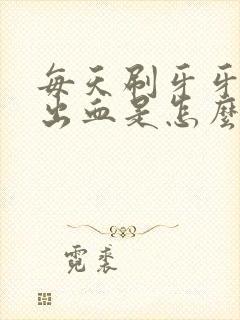 每天刷牙牙
出血是怎麼
霓裘